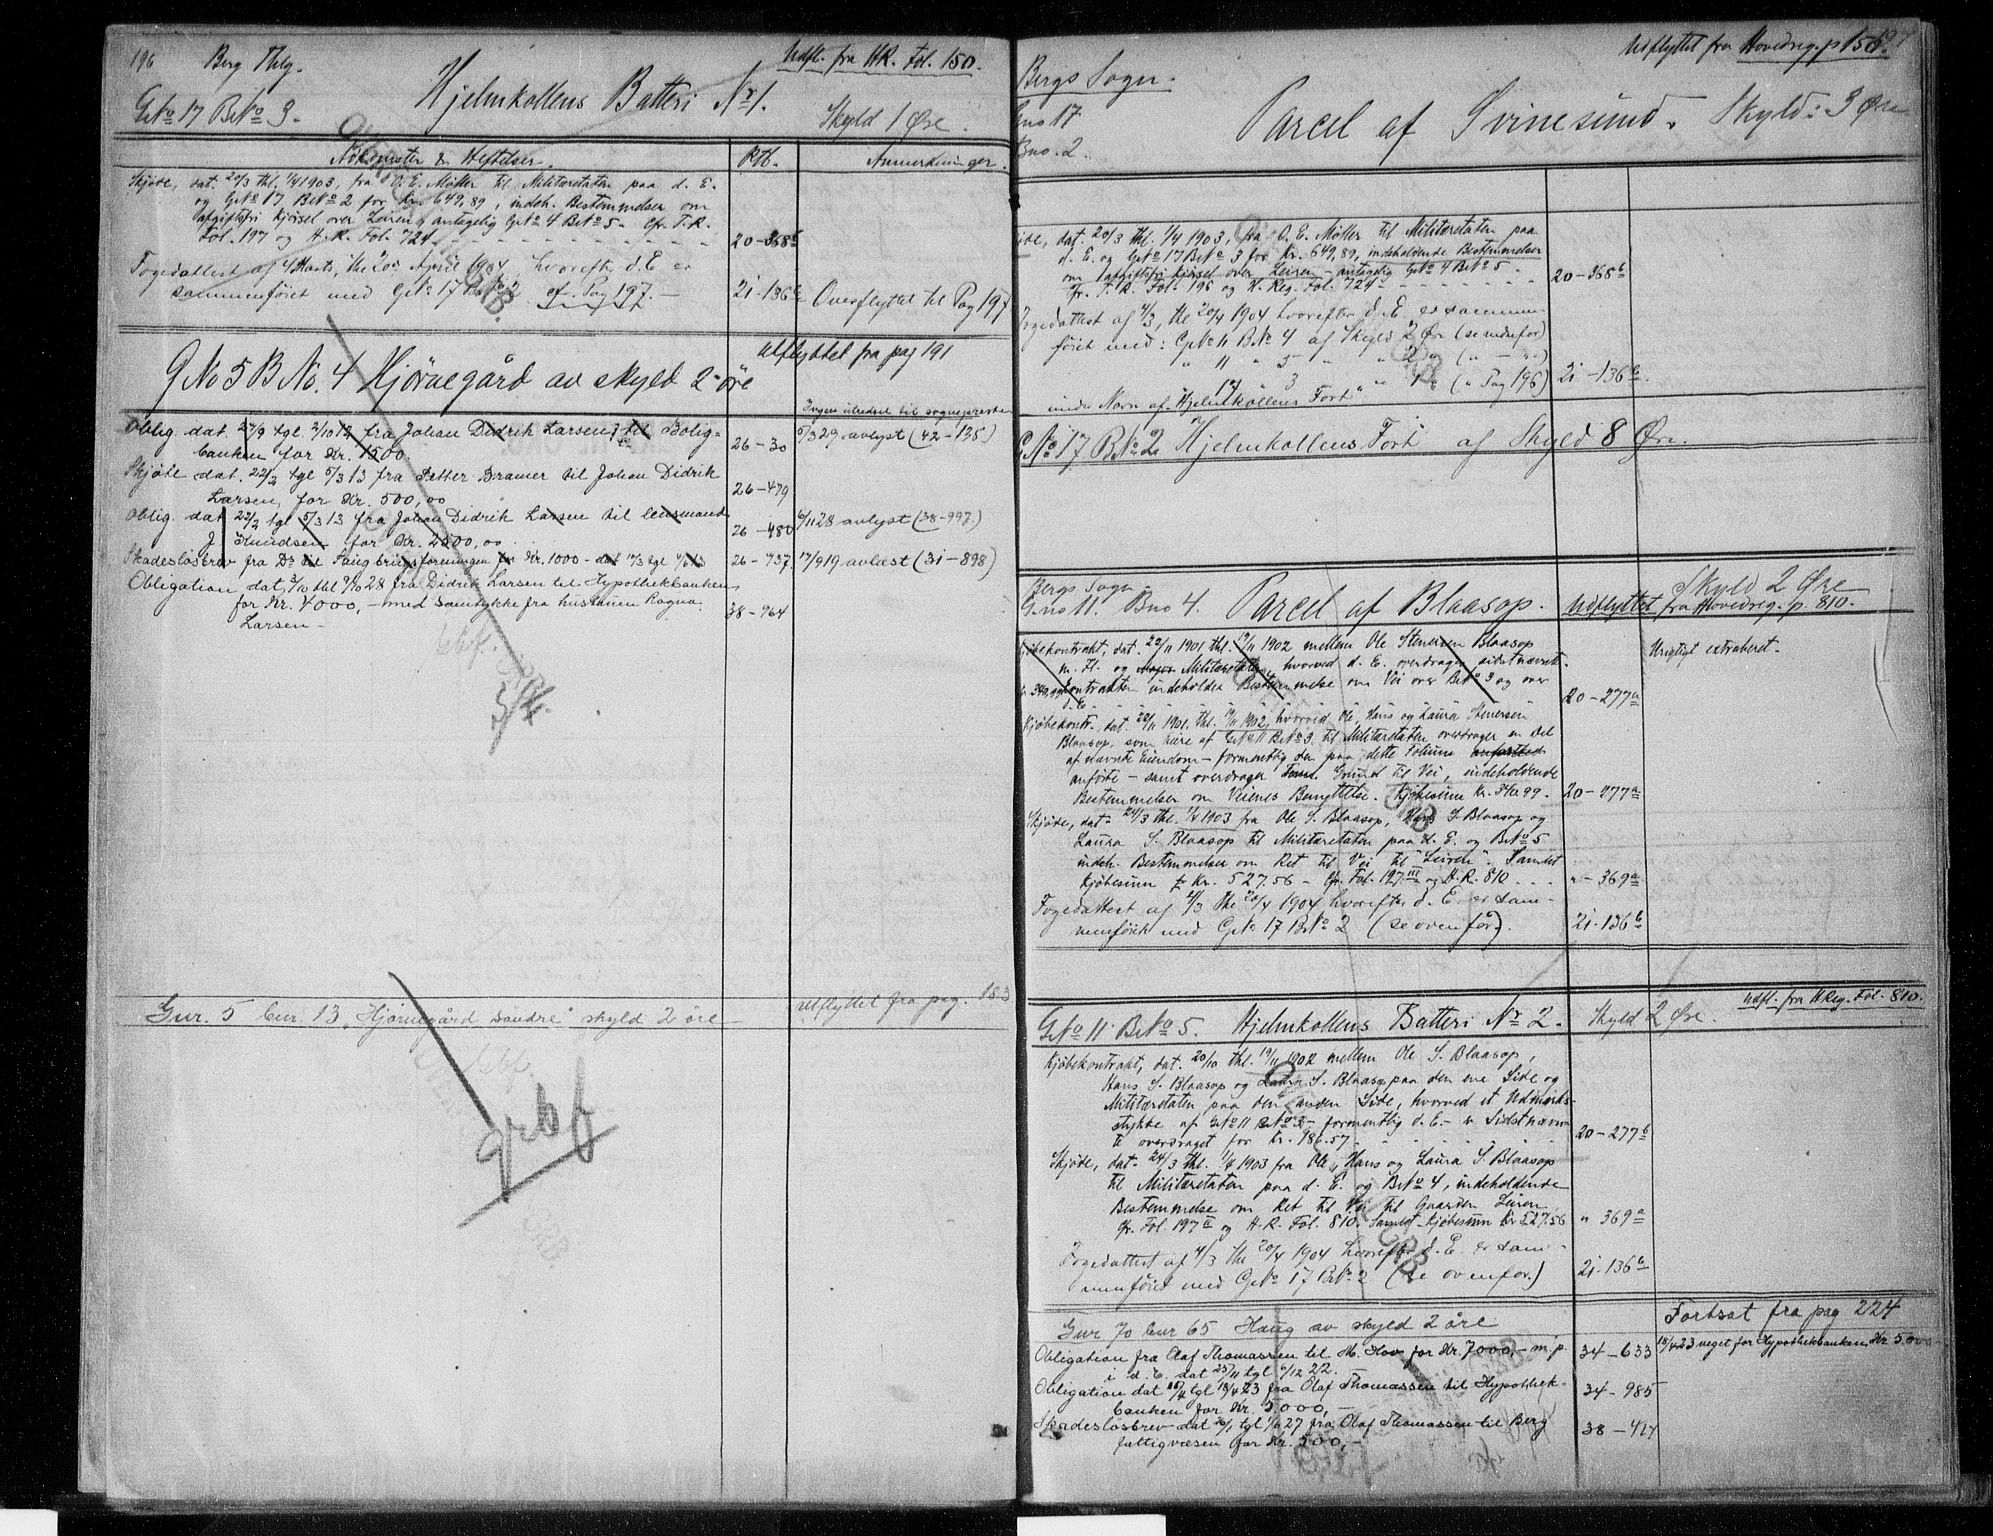 196 Berg Thlg. Udfl. fra HR. Fol. 150.
GNo 17 BNo 3. Hjelmkollens Batteri Nr 1. Skyld 1 Øre.
Adkomster & Heftelser. Rtb. Anmerkninger.
Skjøte, dat. 20/3 thl. 1/4 1903, fra O. E. Møller til Militæretaten paa d. E.
og GNo 17 BNo 2 for Kr. 649,89, indeh. Bestemmelser om
afgiftsfri Kjørsel over Leiren, antagelig GNo 4 BNo 5. Cfr. T. R.
Fol. 197 og H. R. Fol. 724 20-368b
Fogedattest af 4 Marts, thl 20de April 1904, hvorefter d. E er
sammenføiet med GNo 17 BNo 2 cf. Pag 197. 21-136b Overflyttet til Pag 197
utflyttet fra pag 191
G No 5 B No. 4 Hjørnegård av skyld 2 øre
Oblig. dat. 27/9 tgl 2/10 12 fra Johan Didrik Larsen til Bolig-
banken for Kr. 1500. 26-30 5/3 29 avlyst (42-135)
Skjøte dat. 22/2 tgl 5/3 13 fra Petter Bramer til Johan Didrik
Larsen, for Kr. 500,00 26-479
Oblig. dat 22/2 tgl 5/3 13 fra Johan Didrik Larsen til lensmand
J. Knudsen for Kr. 2500,00 26-480 6/11 28 avlyst (38-997)
Skadesløsbrev fra Do til Saugbrugsforeningen for Kr. 1000 - dat 17/5 tgl 4/6 13 26-737 17/9 19 avlæst (31-898)
Obligation dat 3/10 thl 9/10 28 fra Didrik Larsen til Hypothekbanken
for Kr. 4000,- med samtykke fra hustruen Ragna
Larsen - 38-964
bbf.
utflyttet fra pag. 183
Gnr. 5 bnr. 13 „Hjørnegård søndre" skyld 2 øre
bbf.
grbf
197
Udflyttet fra Hovedreg. p 150.
Bergs Sogn.
Gno 17
Bno. 2. Parcel af Svinesund. Skyld: 3 Øre
Skjøde, dat. 20/3 thl. 1/4 1903, fra O. E. Møller til Militæretaten paa
d. E. og GNo 17 BNo 3 for Kr. 649,89, indeholdende Bestemmelser
om afgiftsfri Kjørsel over Leiren - antagelig GNo 4 BNo 5.
Cfr. T. R. Fol. 196 og H. Reg. Fol. 724 20-368b
Fogedattest af 4/3, thl 20/4 1904 hvorefter d. E. er sammen-
føiet med: GNo 11 BNo 4 af Skyld 2 Øre (se nedenfor)
" 11 " 5 " " 2 " (" - ")
" 17 " 3 " " 1 " (" Pag 196) 21-136b.
under Navn af „Hjelmkollens Fort"
GNo 17 BNo 2 „Hjelmkollens Fort" af Skyld 8 Øre.
Bergs Sogn
G.no 11. Bno 4. Parcel af Blaasop. Skyld 2 Øre
Udflyttet fra Hovedreg. p. 810.
Kjøbekontrakt, dat. 22/11 1901 thl. 19/11 1902 mellem Ole Stenersen Blaasop
m. Fl. og Militæretaten, hvorved d. E. overdrages sidstnævnte.
Kontrakten indeholder Bestemmelse om Vei over BNo 3 og over
d. E. 20-277a Urigtigt extraheret.
Kjøbekontr. dat 22/11 1901. thl. 19/11 1902, hvorved Ole, Hans og Laura Stenersen
Blaasop, som Eiere af GNo 11 BNo 3 til Militæretaten overdrager en Del
af nævnte Eiendom - formentlig den paa dette Folium
anførte - samt overdrager Grund til Vei, indeholdende
Bestemmelser om Veiens Benyttelse. Kjøbesum Kr. 340.99. 20-277a
Skjøde, dat. 24/3 thl. 1/4 1903 fra Ole S. Blaasop, Hans S. Blaasop og
Laura S. Blaasop til Militæretaten paa d. E. og BNo 5
indeh. Bestemmelser om Ret til Vei til „Leiren". Samlet
Kjøbesum Kr. 527.56 - Cfr. Fol. 197 III og H. R. 810 " - 369a
Fogedattest af 4/3 thl 20/4 1904 hvorefter d. E. er sam-
menføiet med GNo 17 BNo 2 (se ovenfor). 21-136b
Udfl. fra HReg. Fol. 810.
GNo 11 BNo 5. Hjelmkollens Batteri Nr 2. Skyld 2 Øre.
Kjøbekontrakt, dat. 20/10 thl. 19/11 1902 mellem Ole S. Blaasop,
Hans S. Blaasop og Laura S. Blaasop paa den ene Side og
Militæretaten paa den anden Side, hvorved et Udmarks-
stykke af GNo 11 BNo 3 - formentlig d. E. - er Sidstnævn-
te overdraget for Kr. 186.57 20-277b
Skjøde, dat. 24/3 thl. 1/4 1903 fra Ole, Hans og Laura S. Blaasop
til Militæretaten paa d. E. og BNo 4, indeholdende
Bestemmelse om Ret til Vei til Gaarden Leiren
Cfr. Fol. 197 II og H. R. Fol. 810. Samlet Kjøbesum Kr 527.56 " 369a
Fogedattest af 4/3 thl 20/4 1904 hvorefter d. E. er sam-
menføiet med GNo 17 BNo 2 (se ovenfor.) 21-136b
Fortsat fra pag 224
Gnr 70 bnr 65 Haug av skyld 2 øre
Obligation fra Olaf Thomassen til M. Hov for Kr. 7000,- m. p.
i d. E. dat 25/11 tgl 6/12 22. 34-633 18/4 23 veget for Hypothekbanken Kr 5000
Obligation dat tgl 18/4 23 fra Olaf Thomassen til Hypothek-
banken for Kr. 5.000,- 34-985
Skadesløsbrev dat tgl 27 fra Olaf Thomassen til Berg
fattigvæsen for Kr. 500,- 38-